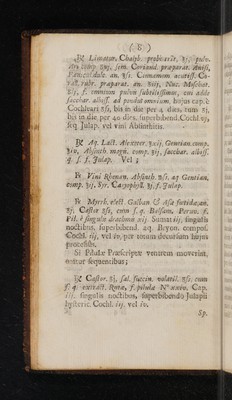 ( 8 )
℞ Limatur. Chalyb. præparat. ℥j. pulv.
ari comp. ʒvj. sem. Coriand. præparat. Anisi,
Fœnicul. dulc. an. ʒſs. Cinnamom. acutiſſ. Co-
ral. rubr. præparat. an. ℈iij. Nuc. Moſchat.
℈ij. f. omnium pulvis ſubtiliſſimus, cui adde
ſacchar. albiſſ. ad pondus omnium, hujus cap. è
Cochleari ʒſs, bis in die per 4 dies, tum ʒj.
bis in die per 40 dies, ſuperbibend. Cochl. vj,
ſeq Julap. vel vini Abſinthitis.
℞ Aq. Lact. Alexiter. ℥xij. Gentian. comp.
℥iv. Abſinth. magn. comp. ℥ij. ſacchar. albiſſ.
q. ſ. f. Julap. Vel ;
℞ Vini Rhenan. Abſinth. ℔ſs. aq. Gentian.
comp. ℥ij. Syr. Caryophyll. ℥j. f. Julap.
℞ Myrrh. elect. Galban. & Aſa fœtida, an.
ʒj. Caſtor. ʒſs. cum ſ. q. Balſam. Peruv. f.
Pil. è ſingula drachma xij. Sumat iij. ſingulis
noctibus, ſuperbibend. aq. Bryon. compoſ.
Cochl. iij. vel iv, per totum decurſum hujus
proceſſus.
Si Pilulæ Præſcriptæ ventrem moverint,
utatur ſequentibus;
℞ Caſtor. ʒj. ſal. ſuccin. volatil. ʒſs. cum
ſ. q. extract. Rutæ, f. pilulæ Nº xxiv. Cap.
iij. ſingulis noctibus, ſuperbibendo Julapii
hyſteric. Cochl. iij. vel iv.
Sp.